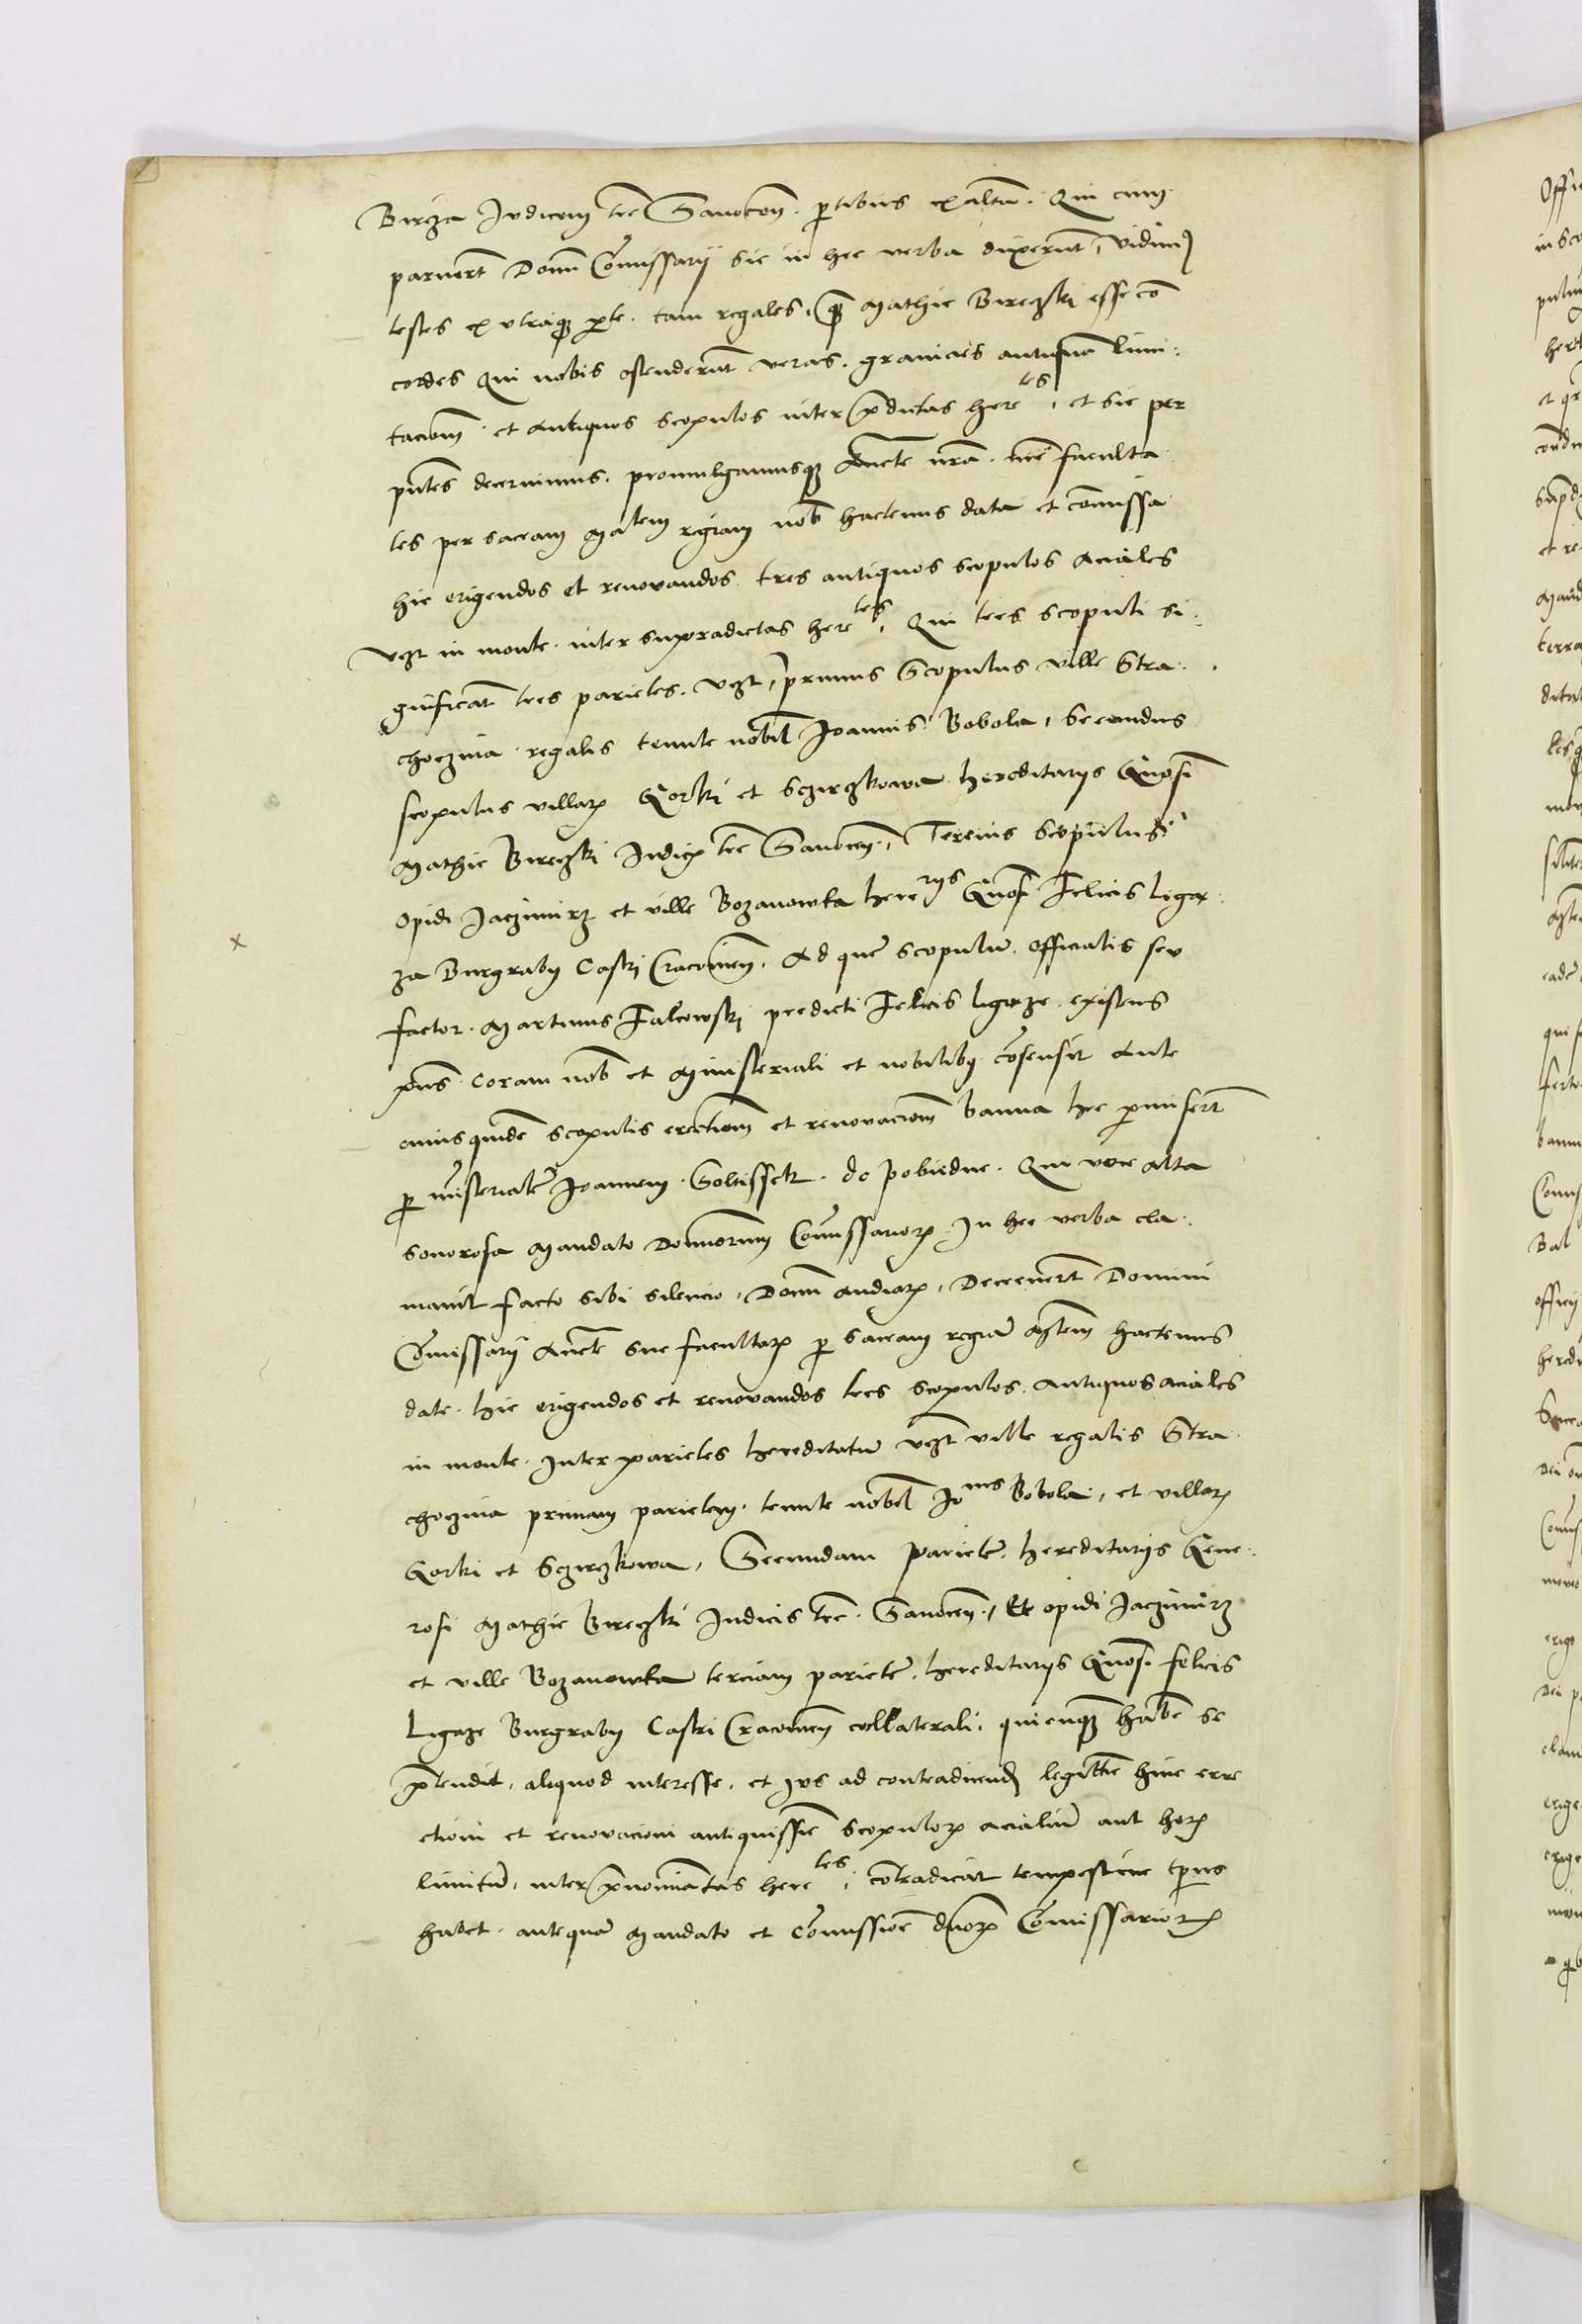 Bircza Judicem tre Sanocen. ptibus exaltm. Qui cum
paruert Domi Comissarij sic in hec verba dixerunt, vidim9
testes ex utraq3 pte. tam regales, q3 Mathie Bireczki esse con
cordes Qui nobis ostenderunt veras. granicies antiquam limi:
tacionem. et antiquos scopulos inter pdictas heretes, et sic per
pntes decernimus. promulgamusq3 Aucte nra. nre faculta
tes per sacram Matem regiam nob hactenus data et comissa
hic erigendos et renovandos tres antiquos scopulos aciales
vzt in monte. inter supradictas heretes, Qui tres scopuli si:
gnificant tres parietes. vzt, primus Scopulus ville Stra:
choczina regalis tenute nobil Joannis Bobola, secundus
scopulus villar Gorki et Sczirzkowa hereditarijs Gnosi
Mathie Bireczki Judicis tre Sanocen, Tercius scopulus
opidi Jaczimirz et ville Bozanowka hererijs Gnosi Felicis Liga
za Burgrabij Castri Cracovien. Ad quem scopulum. officialis seu
factor. Martinus Falcowski predicti Felicis ligaze. existens
pns coram nob et Ministeriali et nobilibus consensit Ante
cuiusquidem scopulis erectionem et renovacionem banna hic pmisert
p misterialem Joannem. Soltissek. de pobiedne. Qui voce alta
sonorosa Mandato Dominorum Comissarior. In hec verba cla:
mavit facto sibi silencio, Domi audiat, Decrevert Domini
Comissarij Aucte sue facultat p sacram regiam Mtem hactenus
date. hic erigendos et renovandos tres scopulos. antiquos aciales
in monte. Inter parietes hereditatum vzt ville regalis Stra
choczina primam parietem. tenute nobil Jonis Bobola, et villar
Gorki et Sczirzkowa, Secundam parietem. hereditarijs Gene:
rosi Mathie Bireczki Judicis tre. Sanocen, Et opidi Jaczimirz
et ville Bozanowka terciam parietem. hereditarijs Gnosi felicis
Ligaze Burgrabij Castri Cracovien collaterali. quicunq3 habere se
ptendit, aliquod interesse, et jus ad contradicend legittime huic erre
ctioni et renovacioni antiquissime scopulor acialium aut hor
limitum, inter pnominatas heretes, contradicat tempestive tpus
habet. antequam Mandato et Comissione dnor Comissarior